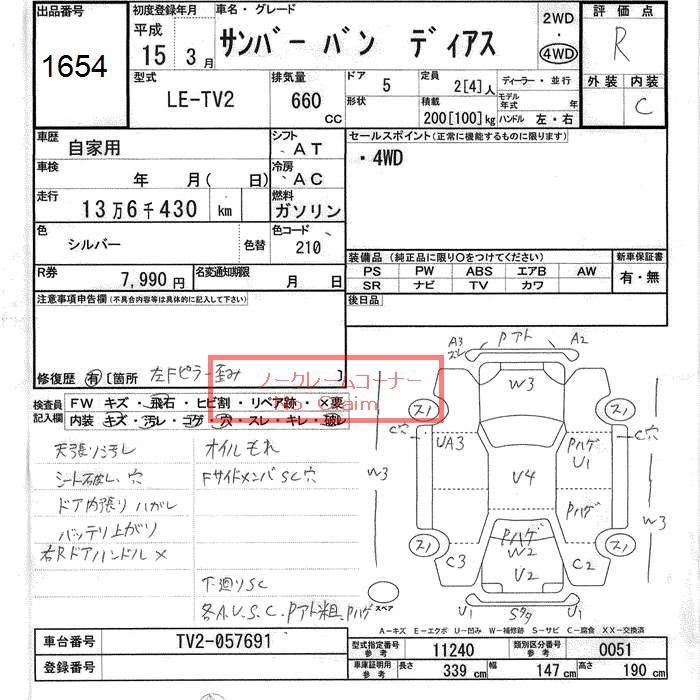 出品番号
1654
初度登録年月
平成
15 3月
車名・グレード
サンバー バン ディアス
2WD
・
4WD
評価点
R
外装 内装
C
型式
LE-TV2
排気量
660
CC
ドア
5
形状
定員
2[4]人
積載
200[100]kg
ディーラー・並行
モデル年式 年
ハンドル 左・右
車歴
自家用
シフト
AT
車検
年 月( 日)
冷房
AC
走行
13万6千430 km
燃料
ガソリン
色
シルバー
色替
色コード
210
R券
7,990円
名変通知期限
月 日
セールスポイント(正常に機能するものに限ります)
・4WD
装備品 (純正品に限り○をつけてください)
PS PW ABS エアB AW
SR ナビ TV カワ
新車保証書
有・無
後日品
注意事項申告欄(不具合内容等は具体的に記入して下さい)
修復歴 有 [箇所 左Fピラー歪み ]
ノークレームコーナー
No Claim
検査員記入欄
FW キズ・飛石・ヒビ割・リペア跡・×要
内装 キズ・汚レ・コゲ・穴・スレ・キレ・破レ
天張リ汚レ
シート破レ、穴
ドア内張リハガレ
バッテリ上がり
右RドアハンドルX
オイルもれ
FサイドメンバSC穴
下廻りSC
各A.U.S.C.Pアト粗Pハゲ
A3
スレ
Pアト
A2
W3
スノ
スノ
C穴
C穴
UA3
Pハゲ
U1
W3
U4
W3
Pハゲ
スノ
スノ
Pハゲ
W2
C3
U2
C2
スペア
U1
U1
A-キズ E-エクボ U-凹み W-補修跡 S-サビ C-腐食 XX-交換済
車台番号
TV2-057691
登録番号
型式指定番号
参考
11240
類別区分番号
参考
0051
車庫証明用
参考
長さ 339 cm 幅 147 cm 高さ 190 cm